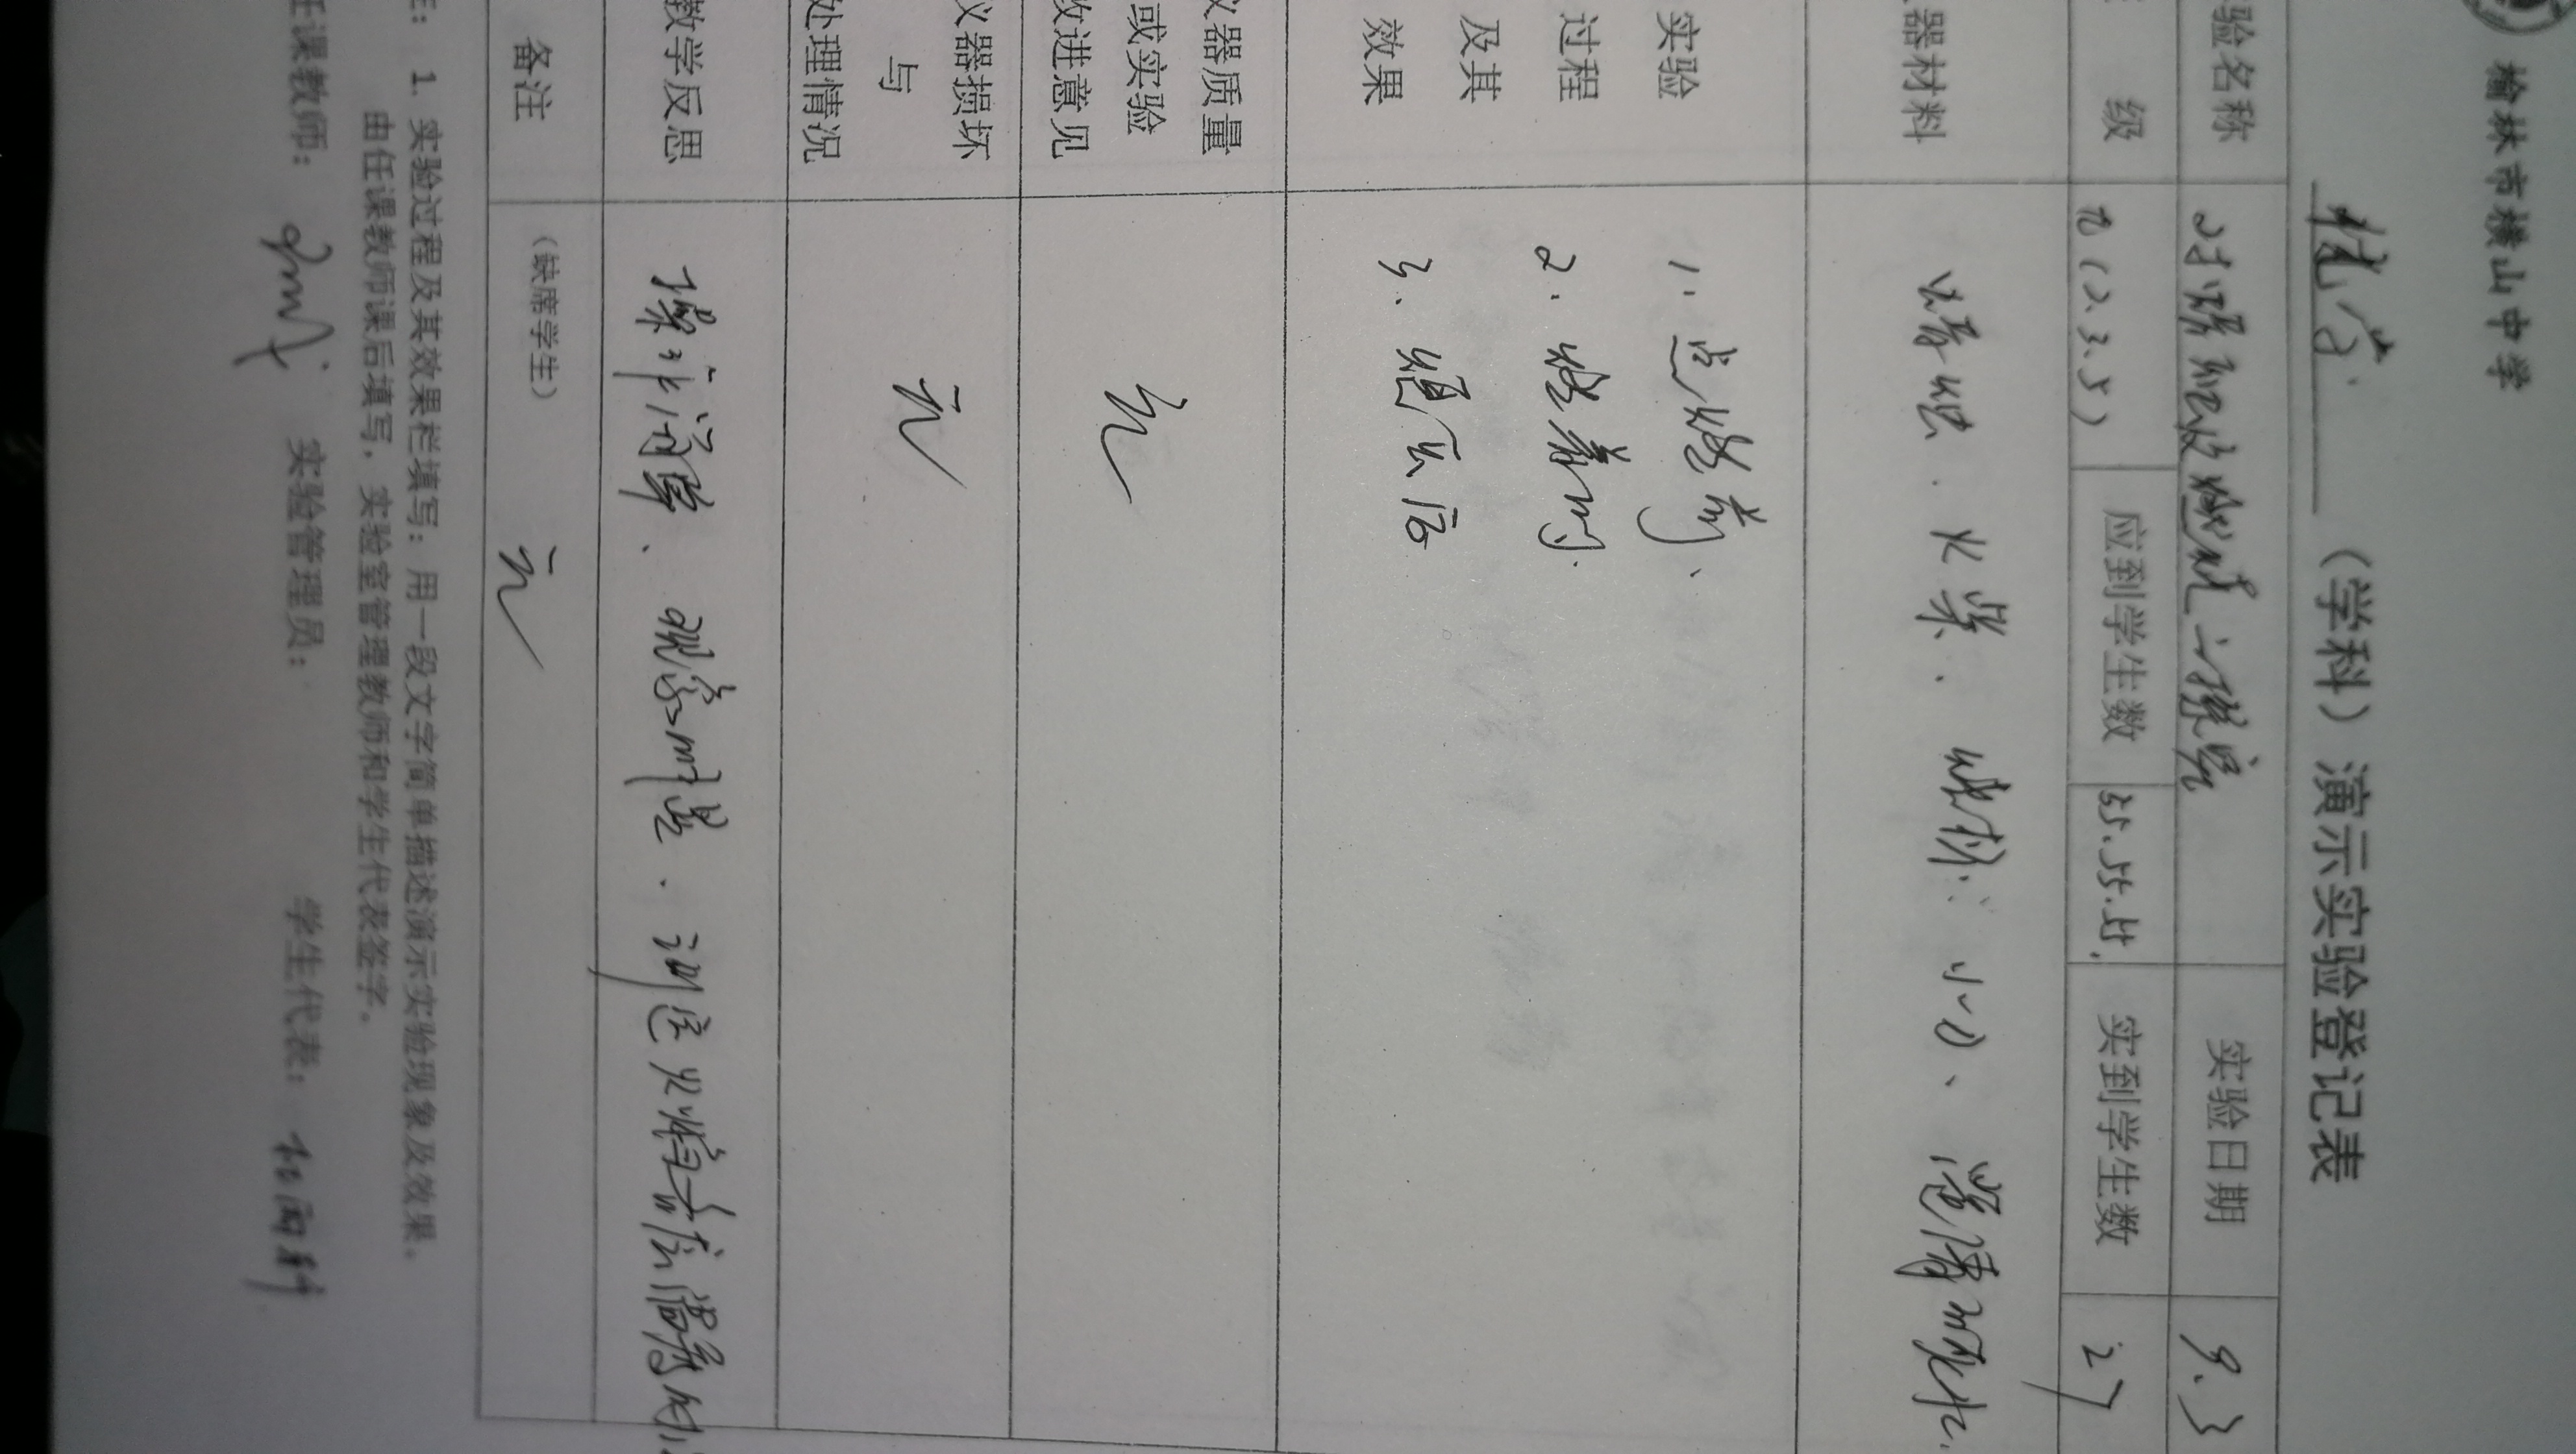 榆林市横山中学
化学 （学科）演示实验登记表
验名称 对蜡烛及燃烧的探究 实验日期 9.3
级 九（2.3.5） 应到学生数 55.55.55. 实到学生数
器材料 蜡烛．火柴．木材．小刀、澄清石灰水．
实验 1．点燃前、
过程 2．燃着时．
及其 3．熄灭后
效果
仪器质量
或实验 无
改进意见
仪器损坏
与 无
处理情况
教学反思 操作简单、观察明显．
备注 （缺席学生） 无
注：1. 实验过程及其效果栏填写：用一段文字简单描述演示实验现象及效果。
由任课教师课后填写，实验室管理教师和学生代表签字。
任课教师： 实验管理员： 学生代表：